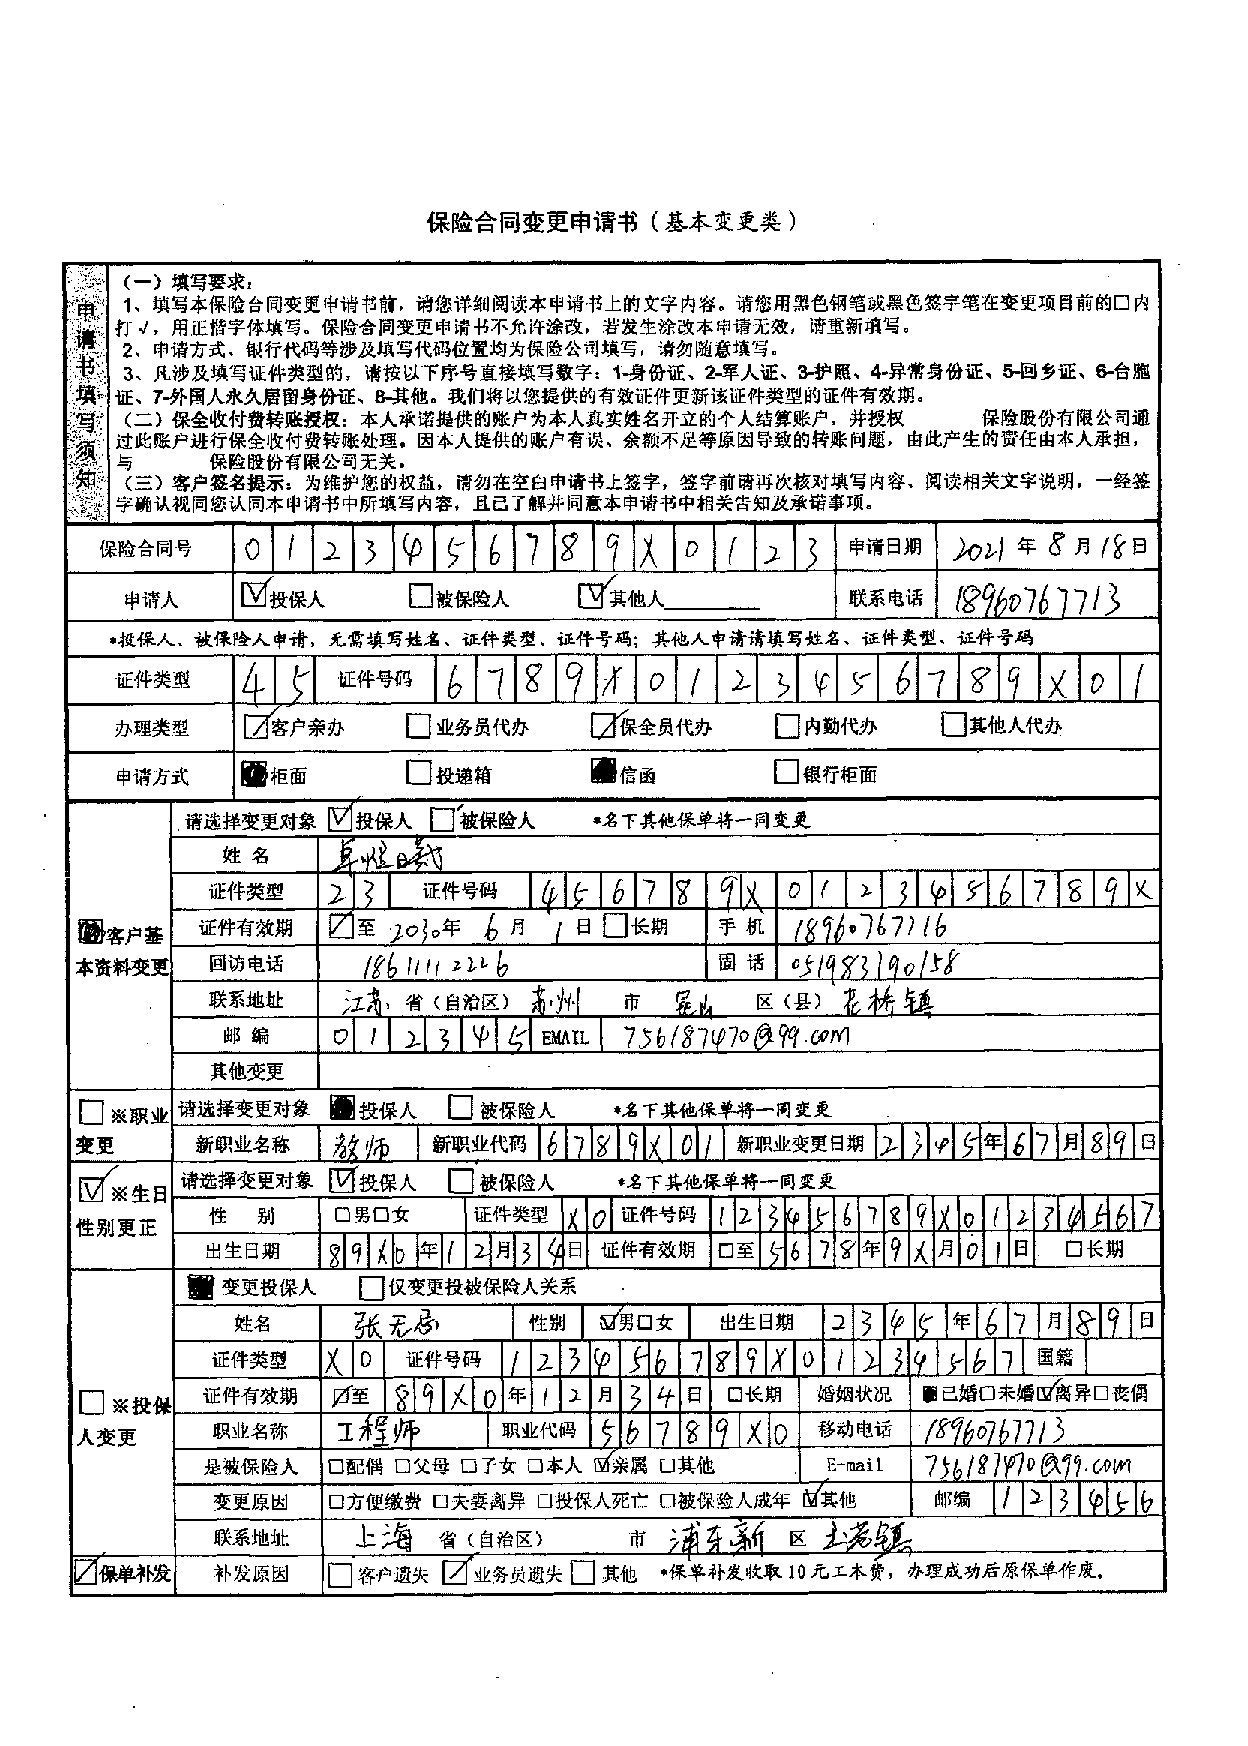 保险合同变更申请书（基本变更类）
申请书填写须知
（一）填写要求：
1、填写本保险合同变更申请书前，请您详细阅读本申请书上的文字内容。请您用黑色钢笔或黑色签字笔在变更项目前的□内
打√，用正楷字体填写。保险合同变更申请书不允许涂改，若发生涂改本申请无效，请重新填写。
2、申请方式、银行代码等涉及填写代码位置均为保险公司填写，请勿随意填写。
3、凡涉及填写证件类型的，请按以下序号直接填写数字：1-身份证、2-军人证、3-护照、4-异常身份证、5-回乡证、6-台胞
证、7-外国人永久居留身份证、8-其他。我们将以您提供的有效证件更新该证件类型的证件有效期。
（二）保全收付费转账授权：本人承诺提供的账户为本人真实姓名开立的个人结算账户，并授权 保险股份有限公司通
过此账户进行保全收付费转账处理。因本人提供的账户有误、余额不足等原因导致的转账问题，由此产生的责任由本人承担，
与 保险股份有限公司无关。
（三）客户签名提示：为维护您的权益，请勿在空白申请书上签字，签字前请再次核对填写内容、阅读相关文字说明，一经签
字确认视同您认同本申请书中所填写内容，且已了解并同意本申请书中相关告知及承诺事项。
保险合同号 0123456789X0123 申请日期 2021年8月18日
申请人 ☑投保人 □被保险人 ☑其他人 联系电话 18960767713
*投保人、被保险人申请，无需填写姓名、证件类型、证件号码；其他人申请请填写姓名、证件类型、证件号码
证件类型 45 证件号码 6789X0123456789X01
办理类型 ☑客户亲办 □业务员代办 ☑保全员代办 □内勤代办 □其他人代办
申请方式 ■柜面 □投递箱 ■信函 □银行柜面
■客户基本资料变更
请选择变更对象 ☑投保人 ☑被保险人 *名下其他保单将一同变更
姓名
证件类型 23 证件号码 456789X0123456789X
证件有效期 ☑至2030年6月1日 □长期 手机 18960767716
回访电话 18611112226 固话 051983190158
联系地址 江苏 省（自治区） 苏州 市 昆山 区（县） 花桥镇
邮编 012345 EMAIL 756187470@99.com
其他变更
□※职业变更
请选择变更对象 ■投保人 □被保险人 *名下其他保单将一同变更
新职业名称 教师 新职业代码 6789X01 新职业变更日期 2345年67月89日
☑※生日性别更正
请选择变更对象 ☑投保人 □被保险人 *名下其他保单将一同变更
性别 □男□女 证件类型 X0 证件号码 123456789X01234567
出生日期 89X0年12月34日 证件有效期 □至5678年9X月01日 □长期
□※投保人变更
■变更投保人 □仅变更投被保险人关系
姓名 张无忌 性别 ☑男□女 出生日期 2345年67月89日
证件类型 X0 证件号码 123456789X01234567 国籍
证件有效期 ☑至89X0年12月34日 □长期 婚姻状况 ■已婚□未婚☑离异□丧偶
职业名称 工程师 职业代码 56789X0 移动电话 18960767713
是被保险人 □配偶 □父母 □子女 □本人 ☑亲属 □其他 E-mail 756187470@99.com
变更原因 □方便缴费 □夫妻离异 □投保人死亡 □被保险人成年 ☑其他 邮编 123456
联系地址 上海 省（自治区） 市 浦东新 区
☑保单补发 补发原因 □客户遗失 ☑业务员遗失 □其他 *保单补发收取10元工本费，办理成功后原保单作废。